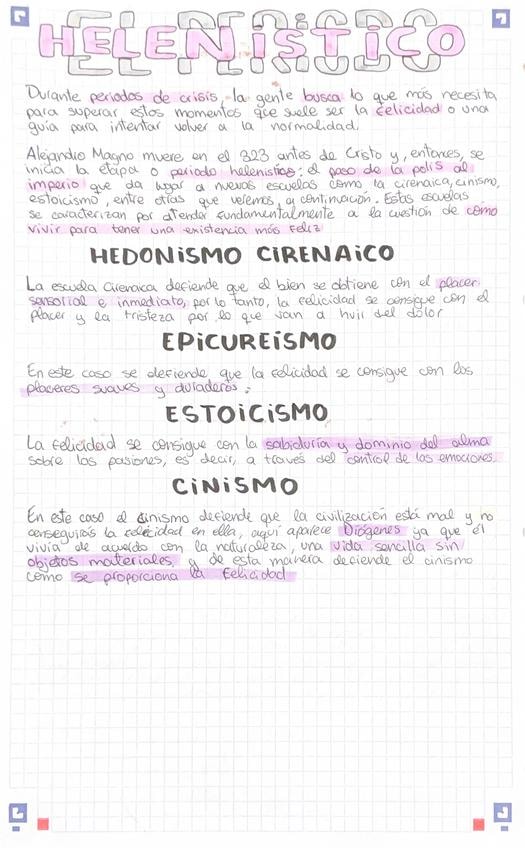 EL PERIODO
HELENISTICO
Durante periodos de crisis, la gente busca lo que más necesita
para superar estos momentos que suele ser la felicidad o una
guía para intentar volver a la normalidad.
Alejandro Magno muere en el 323 antes de Cristo y, entonces, se
inicia la etapa o periodo helenístico: el paso de la polis al
imperio que da lugar a nuevas escuelas como la cirenaica, cinismo,
estoicismo, entre otras que veremos a continuación. Estas escuelas
se caracterizan por atender fundamentalmente a la cuestión de como
vivir para tener una existencia más feliz
HEDONISMO CIRENAICO
La escuela Cirenaica defiende que el bien se obtiene con el placer
sensorial e inmediato, por lo tanto, la felicidad se consigue con el
placer y la tristeza por lo que van a huir del dolor
EPICUREISMO
En este caso se defiende que la felicidad se consigue con los
placeres suaves y duraderos.
ESTOICISMO
La felicidad se consigue con la sabiduría y dominio del alma
sobre las pasiones, es decir, a través del control de las emociones.
CINISMO
En este caso el cinismo defiende que la civilización está mal y no
conseguirás la felicidad en ella, aquí aparece Diógenes ya que él
vivía de acuerdo con la naturaleza, una vida sencilla sin
objetos materiales, y de esta manera defiende el cinismo
como se proporciona la felicidad